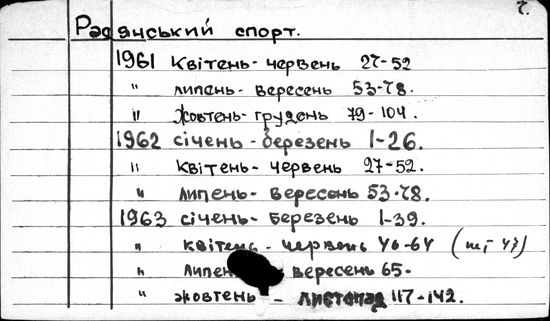 г.
Радянський спорт.
1961 Квітень-червень 27-52
" липень-вересень 53-78.
" Жовтень-грудень 79-104.
1962 січень-березень 1-26.
" Квітень-червень 27-52.
" липень-вересень 53-78.
1963 січень-березень 1-39.
" квітень-червень 40-64
" липен вересень 65-
" жовтень-листопад 117-142.